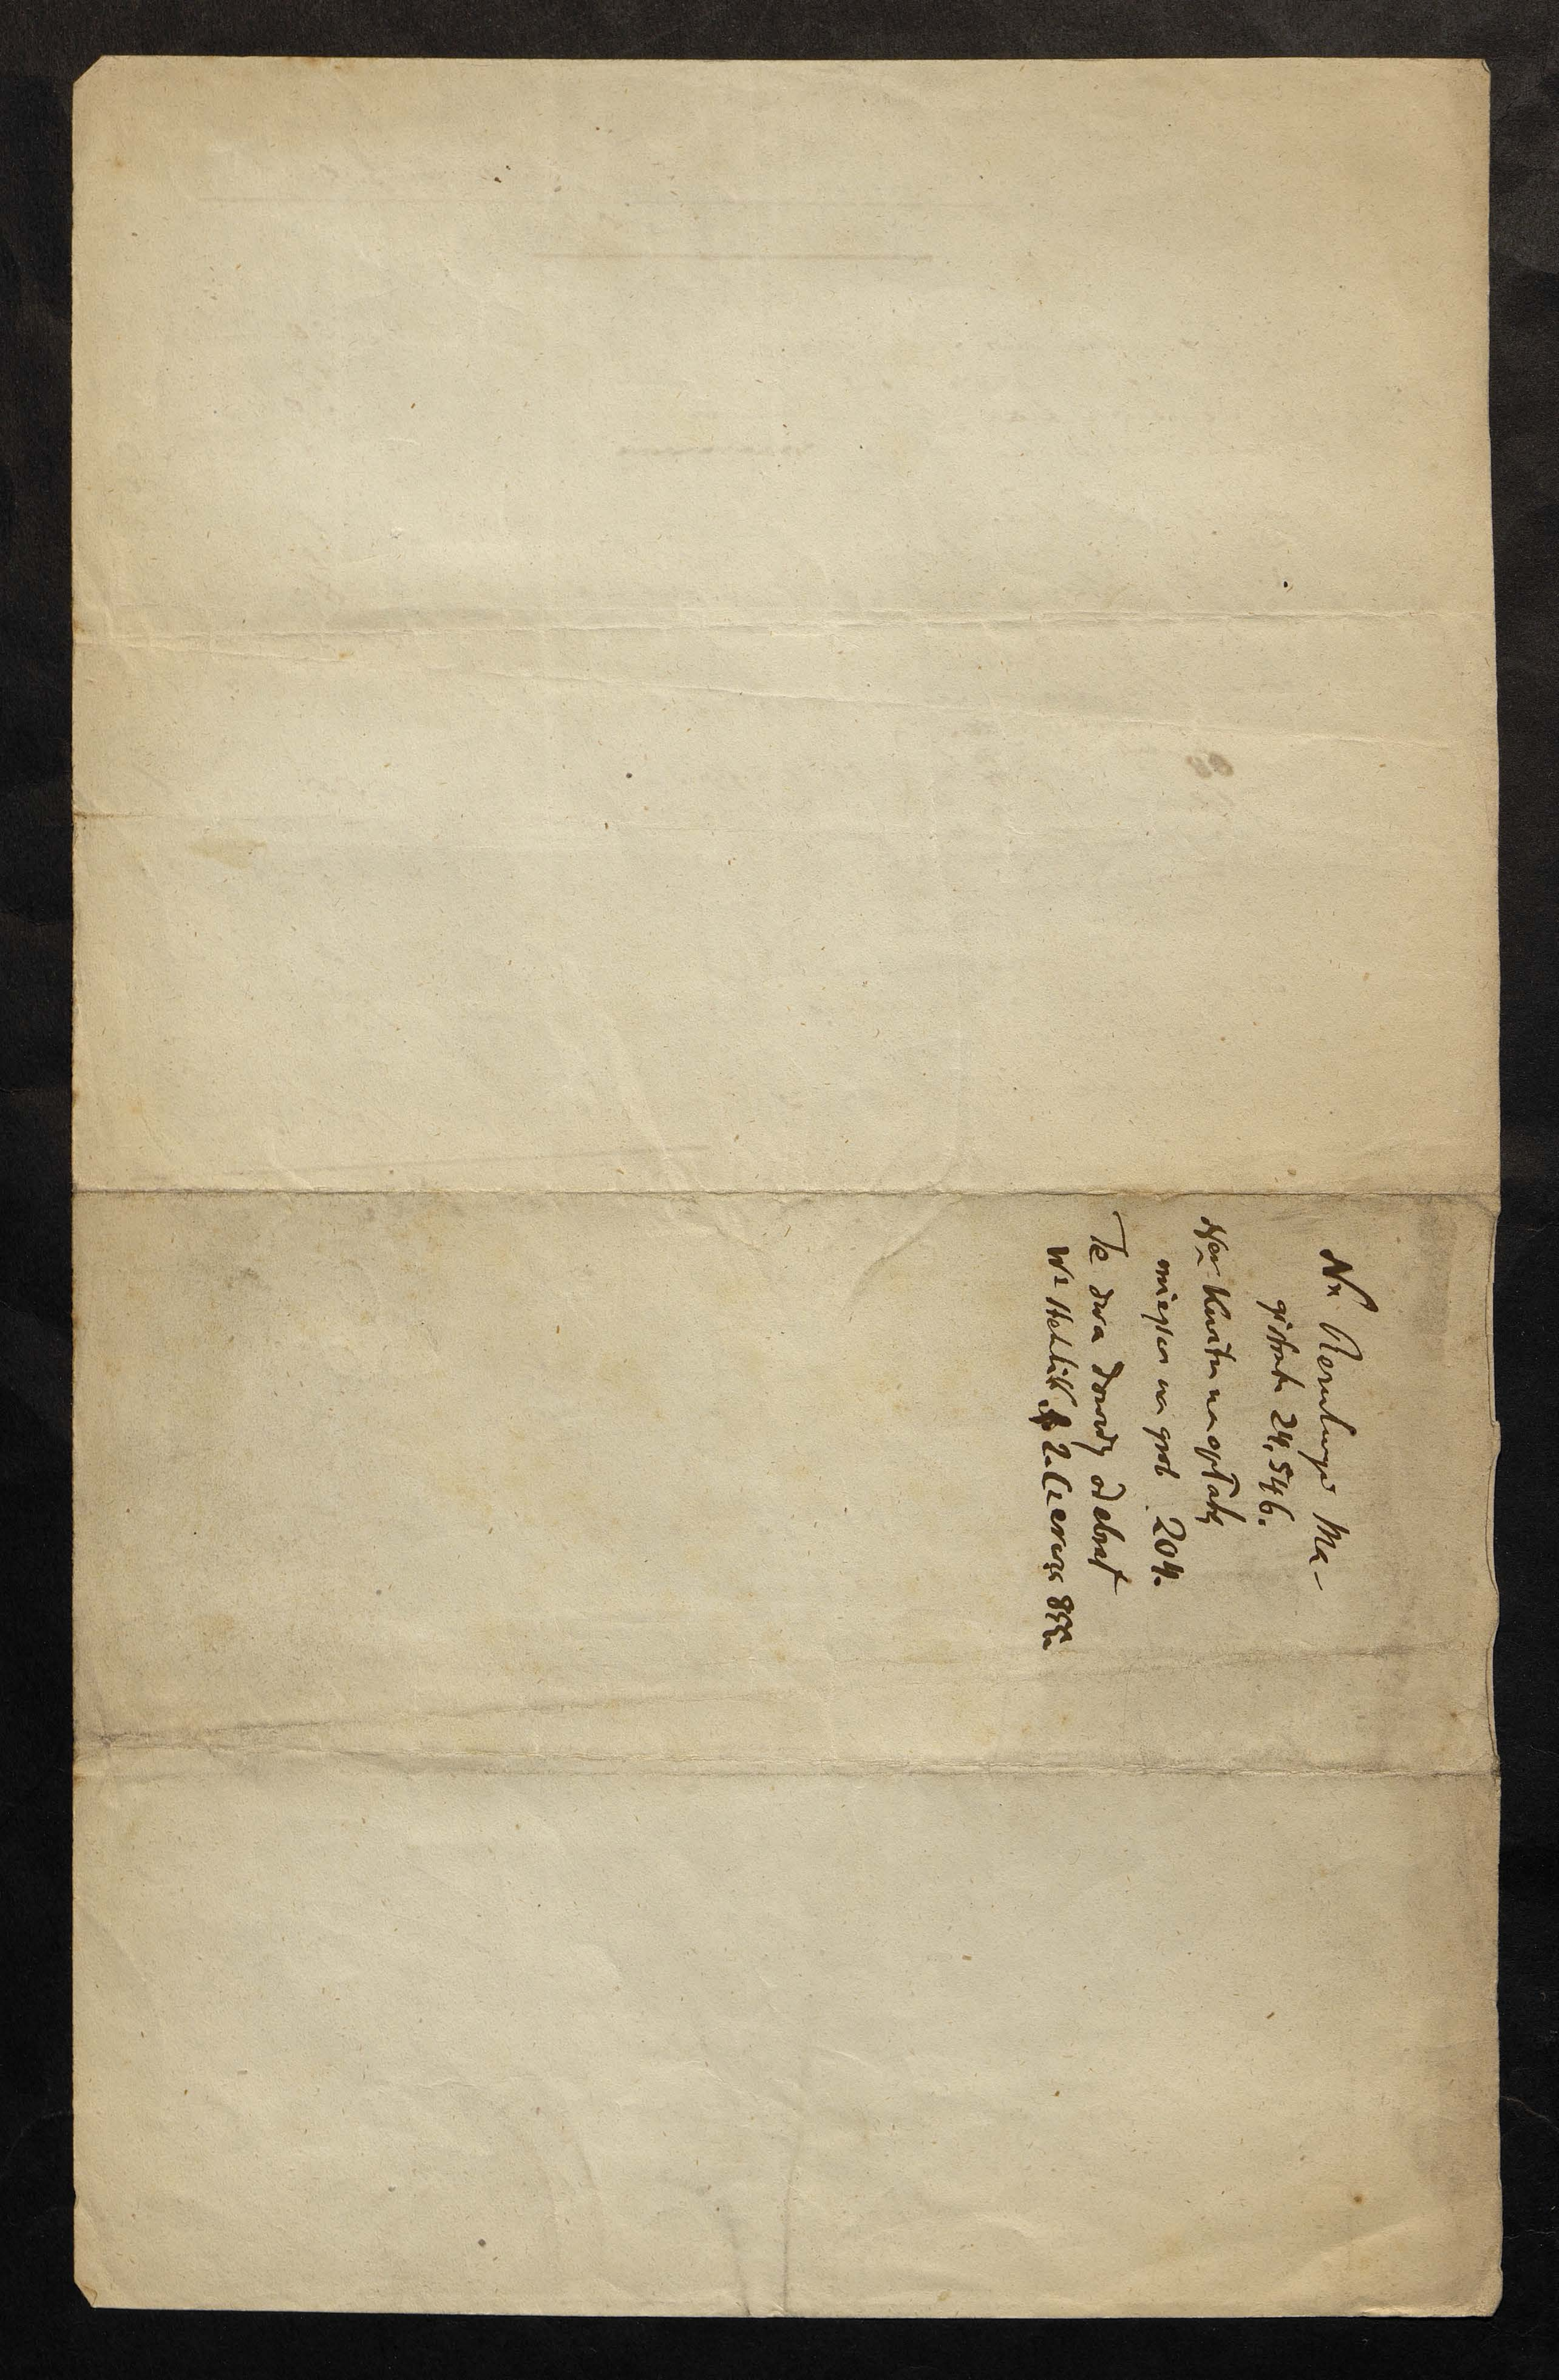 Nr Rezolucyi Ma-
gistratu 24,546.
Ner Kwitu na opłatę
miejsca na grób 204.
Te dwa dowody odebrał
Wł 2. Czerwca 855.